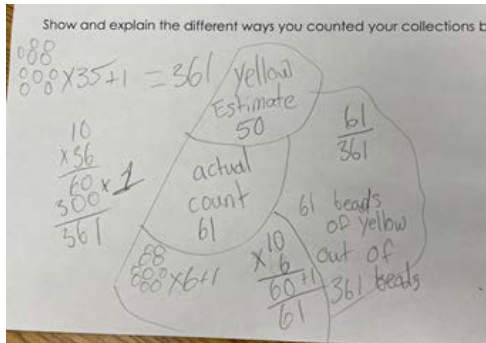 Show and explain the different ways you counted your collections b
x35+1 = 361
yellow
Estimate
50
10
x36
60 x 1
300
361
actual
count
61
61
361
61 beads
of yellow
out of
361 beads
x6+1
10
x 6
60 +1
61